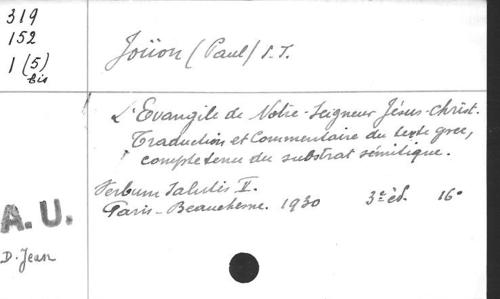 319
152
1 (5)
bis
Joüon (Paul) S.J.
L'Evangile de Notre-Seigneur Jésus-Christ.
Traduction et Commentaire du texte grec,
compte tenu du substrat sémitique.
Verbum Salutis V.
Paris - Beauchesne. 1930 3e éd. 16°
A.U.
D. Jean